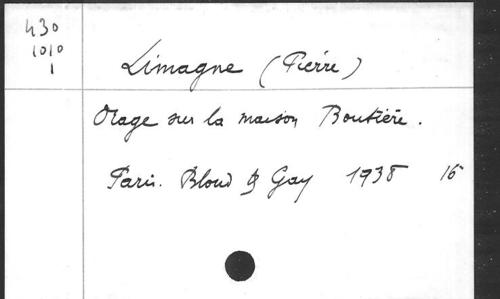 430
1010
1
Limagne (Pierre)
Orage sur la maison Boutière.
Paris. Bloud & Gay 1938 16